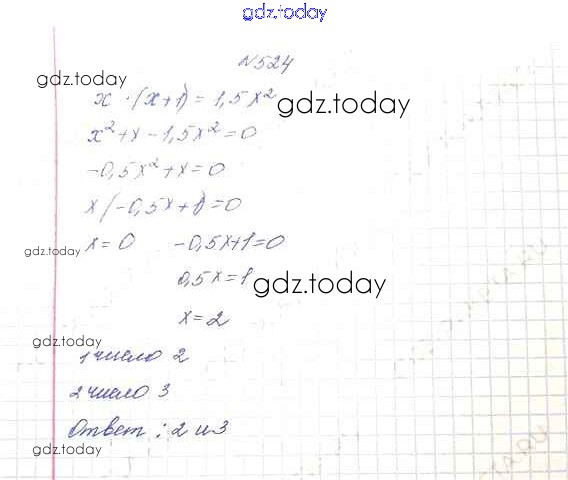 gdz.today
N524
gdz.today
x · (x+1) = 1,5x²
gdz.today
x² + x - 1,5x² = 0
-0,5x² + x = 0
x (-0,5x+1) = 0
x = 0 -0,5x+1=0
gdz.today
0,5x = 1
gdz.today
x = 2
gdz.today
1 число 2
2 число 3
Ответ : 2 и 3
gdz.today